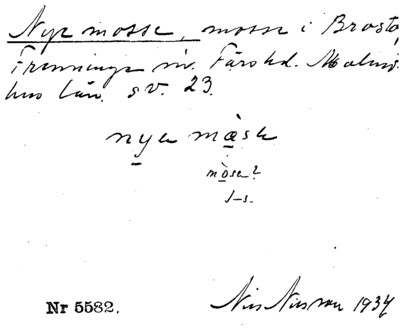 Nye mosse, mosse i Brosta,
Frenninge sn. Färs hd. Malmö-
hus län. s v. 23.
nye måse
måse?
J-s.
Nr 5582.
Nils Nilsson 1934